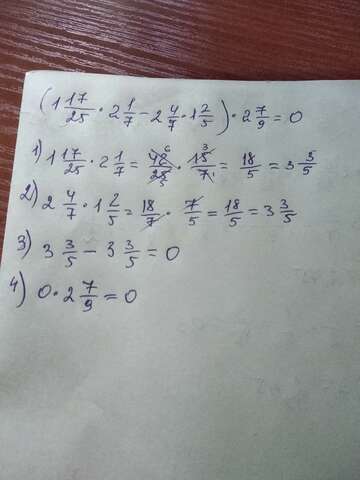 (1 17/25 · 2 1/7 − 2 4/7 · 1 2/5) · 2 7/9 = 0
1) 1 17/25 · 2 1/7 = 42/25 · 15/7 = 18/5 = 3 3/5
2) 2 4/7 · 1 2/5 = 18/7 · 7/5 = 18/5 = 3 3/5
3) 3 3/5 − 3 3/5 = 0
4) 0 · 2 7/9 = 0